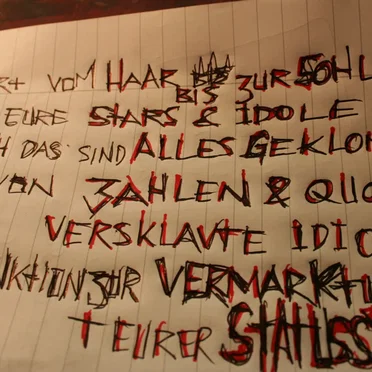 RT VOM HAAR BIS ZUR SOHL
EURE STARS & IDOLE
H DAS SIND ALLES GEKLO
VON ZAHLEN & QUO
VERSKLAVTE IDIO
NKTION ZUR VERMARKTU
T EURER STATUSS